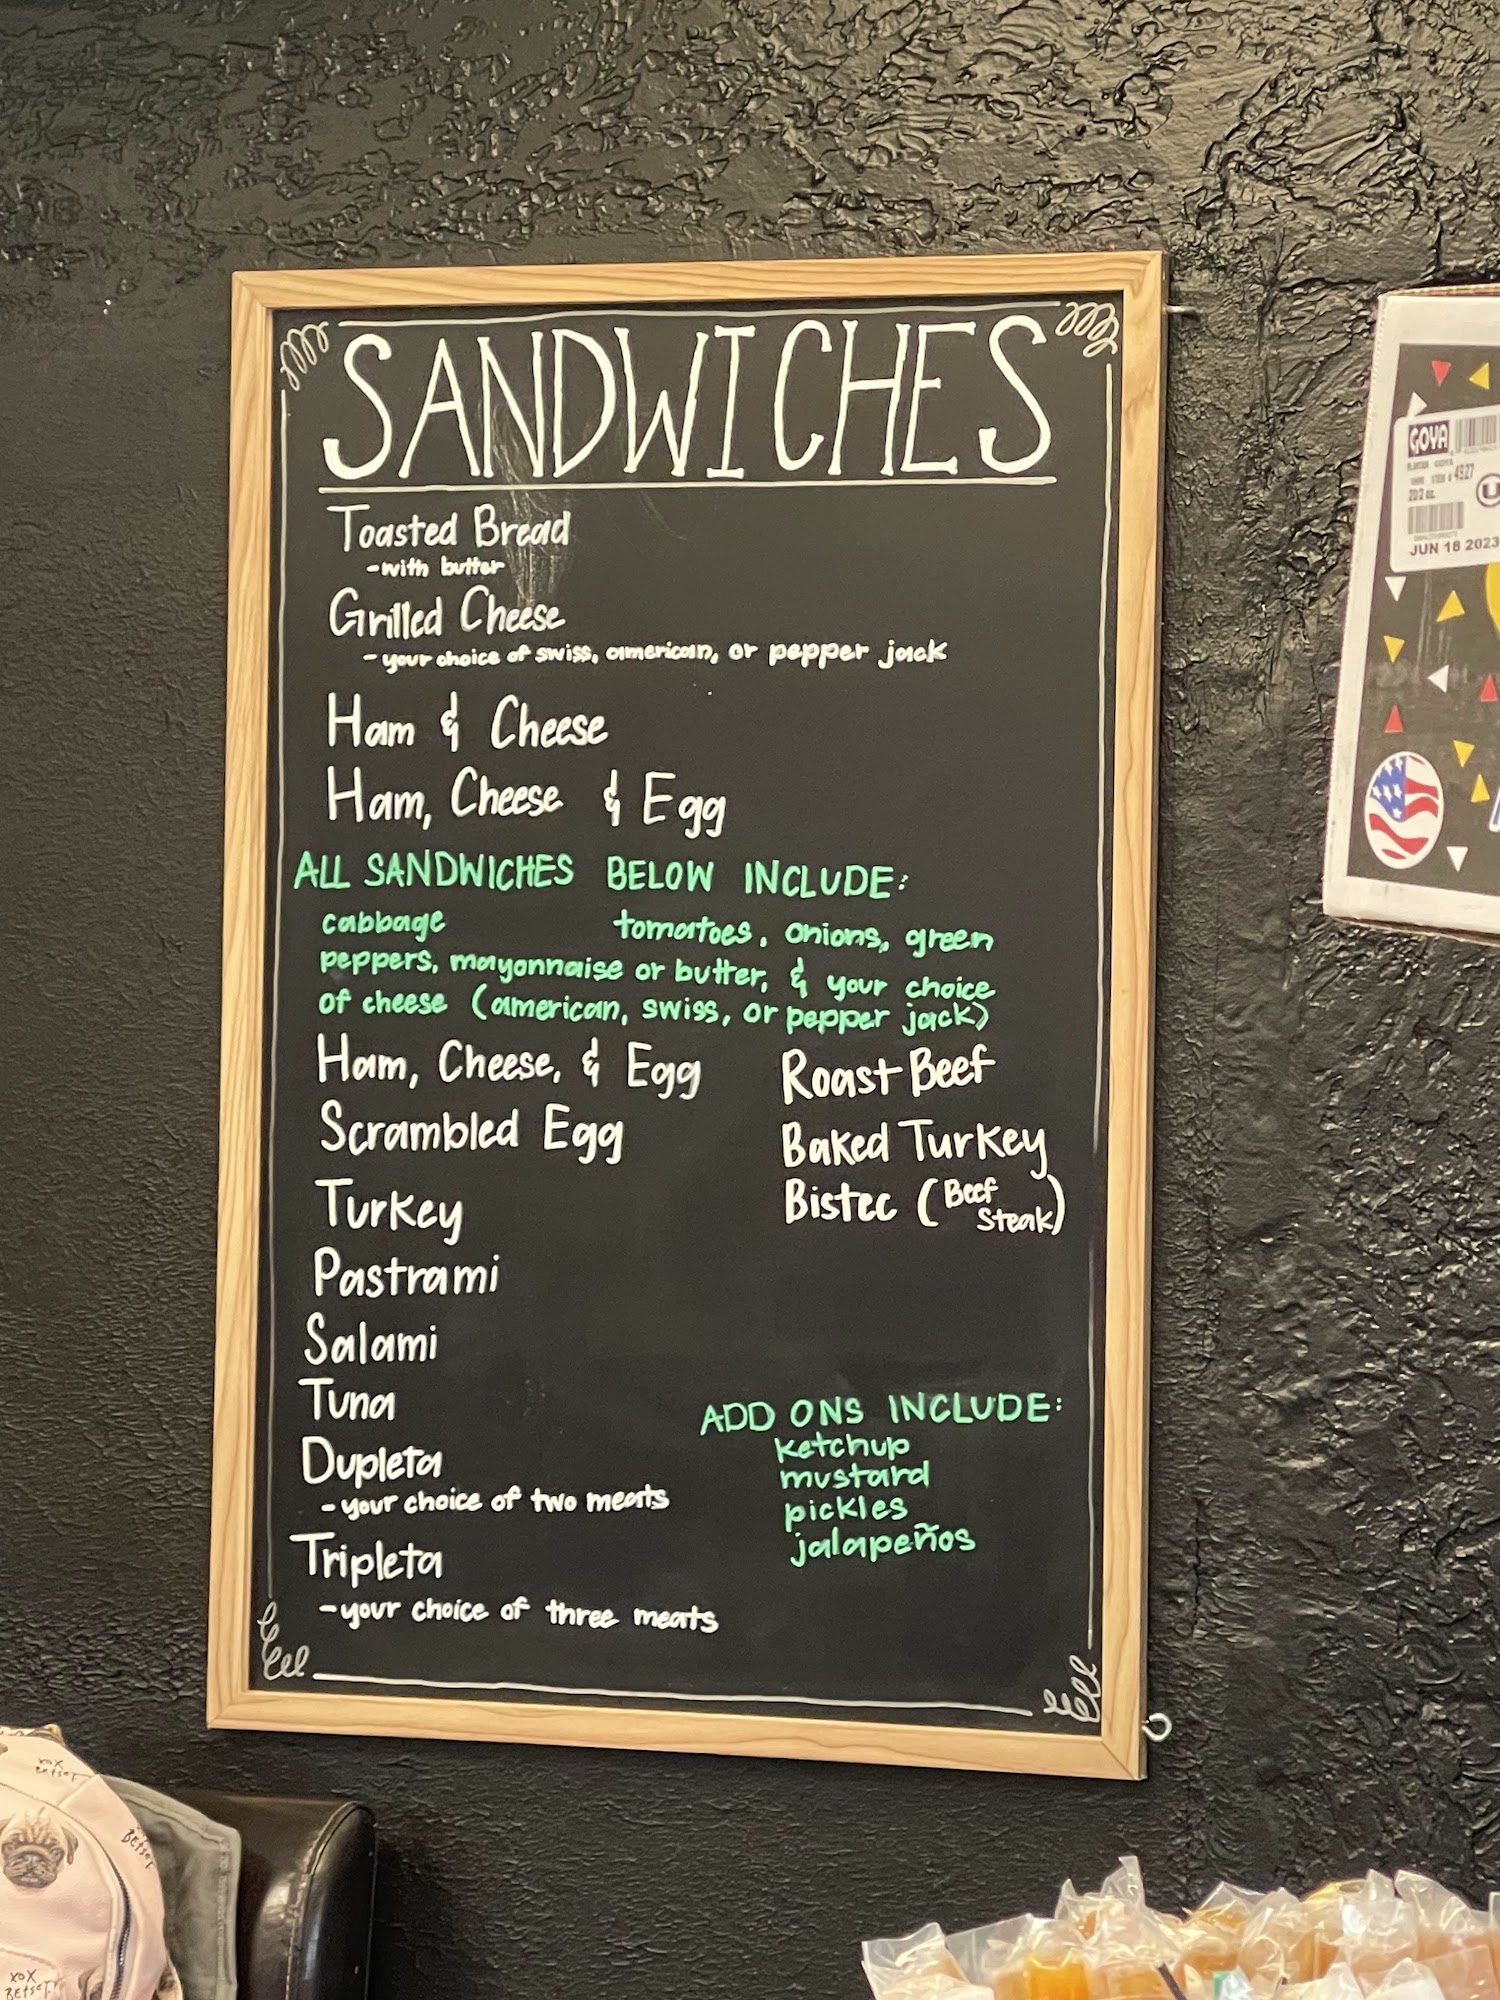 SANDWICHES
Toasted Bread
-with butter
Grilled Cheese
- your choice of swiss, american, or pepper jack
Ham & Cheese
Ham, Cheese & Egg
ALL SANDWICHES BELOW INCLUDE:
cabbage tomatoes, onions, green
peppers, mayonnaise or butter, & your choice
of cheese (american, swiss, or pepper jack)
Ham, Cheese, & Egg
Scrambled Egg
Turkey
Pastrami
Salami
Tuna
Dupleta
- your choice of two meats
Tripleta
- your choice of three meats
Roast Beef
Baked Turkey
Bistec (Beef
Steak)
ADD ONS INCLUDE:
ketchup
mustard
pickles
jalapeños
GOYA
4927
20/2 oz.
U
JUN 18 2023
xox
BETSEY
xox
BETSEY